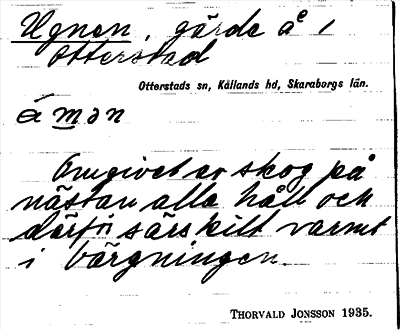 Ugnen, gärde å /
Otterstad
Otterstads sn, Kållands hd, Skaraborgs län.
Omgivet av skog på
nästan alla håll och
därför särskilt varmt
i bärgningen.
THORVALD JONSSON 1935.